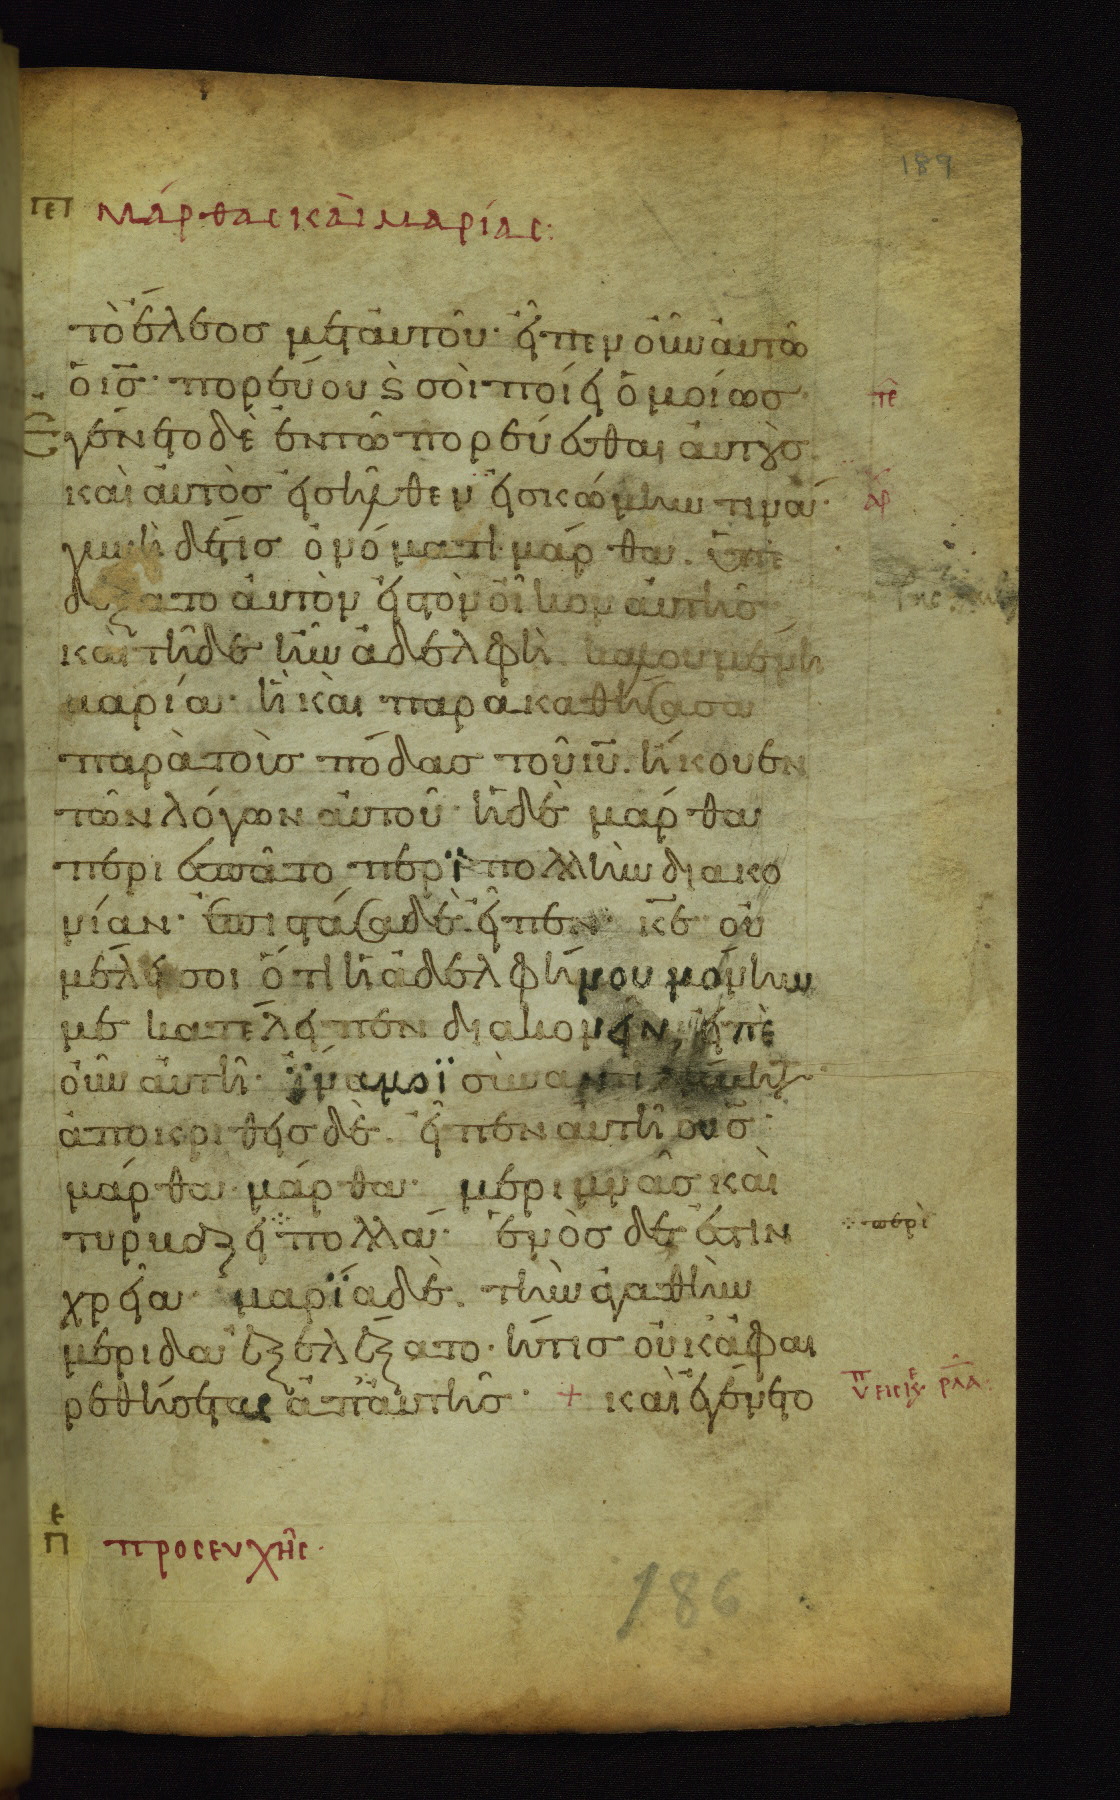 189
πε μάρθας καὶ μαρίας:
τὸ ἔλεος μετ' αὐτοῦ· εἶπεν οὖν αὐτῶ
ὁ ις̅· πορεύου ϗ σοὶ ποίει ὁμοίως·
Ἐγένετο δὲ ἐν τῶ πορεύεσθαι αὐτοὺς
καὶ αὐτὸς εἰσῆλθεν εἰς κώμην τινά·
γυνὴ δέ τις ὀνόματι μάρθα. ὑπε
δέξατο αὐτὸν εἰς τὸν οἶκον αὐτῆς
καὶ τῆδε ἦν ἀδελφὴ καλουμένη
μαρία· ἣ καὶ παρακαθήσασα
παρὰ τοὺς πόδας τοῦ ιυ̅. ἤκουεν
τῶν λόγων αὐτοῦ· ἡ δὲ μάρθα
περιεσπᾶτο περὶ πολλὴν διακο
νίαν· ἐπιστᾶσα δὲ εἶπεν· κε̅ οὐ
μέλει σοι ὅτι ἡ ἀδελφή μου μόνην
με κατέλειπεν διακονεῖν, εἰπὲ
οὖν αὐτῆ· ἵνα μοϊ συναντιλάβηται·
ἀποκριθεὶς δὲ. εἶπεν αὐτῆ ο ις̅·
μάρθα μάρθα· μεριμνᾶς καὶ
τυρβάζει πολλά· ἑνὸς δέ ἐστιν
περὶ
χρεία μαρία δὲ. τὴν ἀγαθὴν
μερίδα ἐξελέξατο· ἥτις οὐκ ἀφαι
ρεθήσεται ἀπ' αὐτῆς· + καὶ ἐγένετο
ρλα
πε προσευχῆς·
186